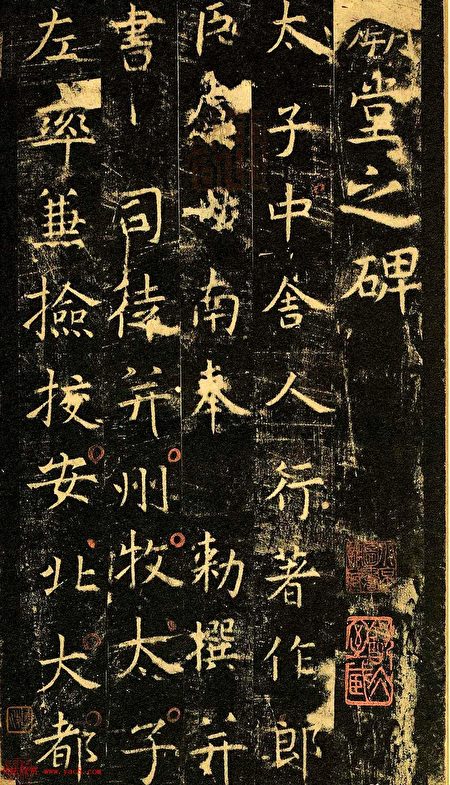 堂之碑
太子中舍人行著作郎
臣世南奉勅撰并
書司徒并州牧太子
左率兼撿挍安北大都